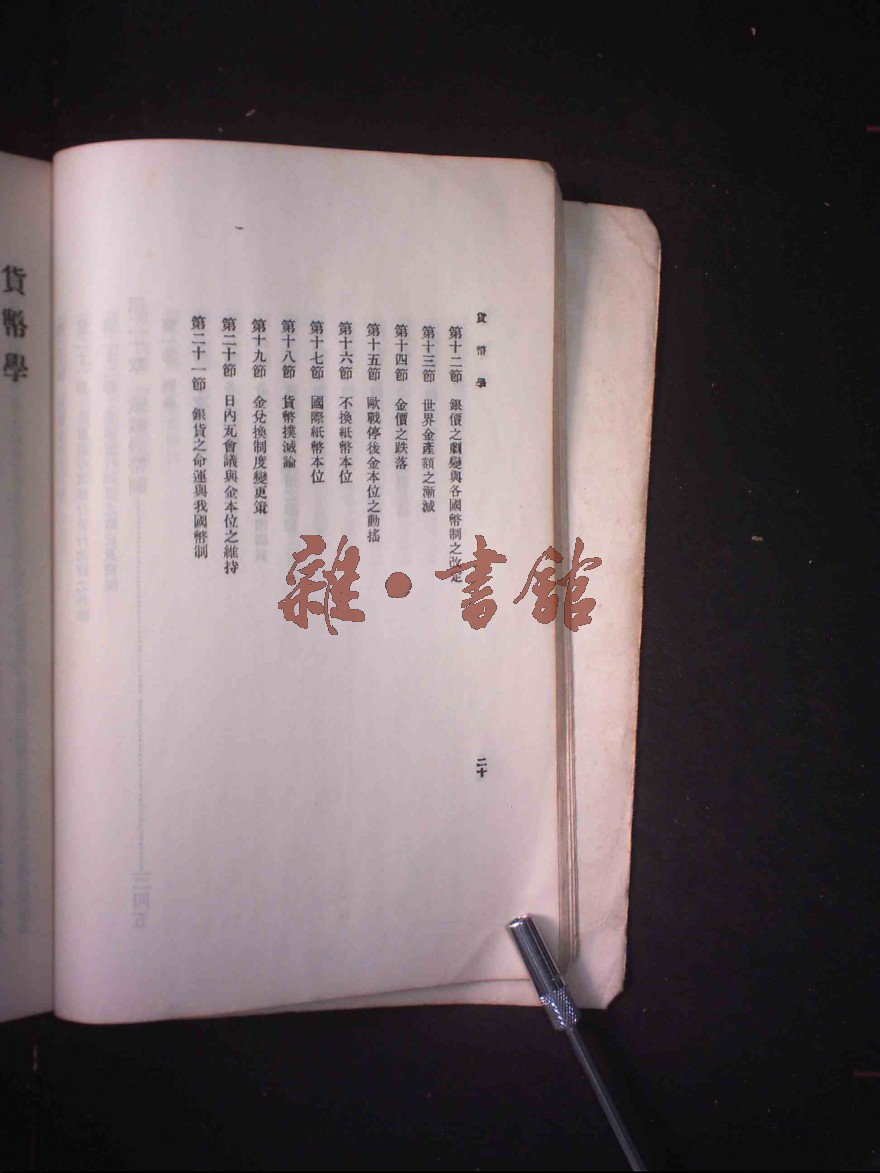 貨幣學
第十二節 銀價之劇變與各國幣制之改定
第十三節 世界金產額之漸減
第十四節 金價之跌落
第十五節 歐戰停後金本位之動搖
第十六節 不換紙幣本位
第十七節 國際紙幣本位
第十八節 貨幣撲滅論
第十九節 金兌換制度變更策
第二十節 日內瓦會議與金本位之維持
第二十一節 銀貨之命運與我國幣制
二十
貨幣學
雜·書館